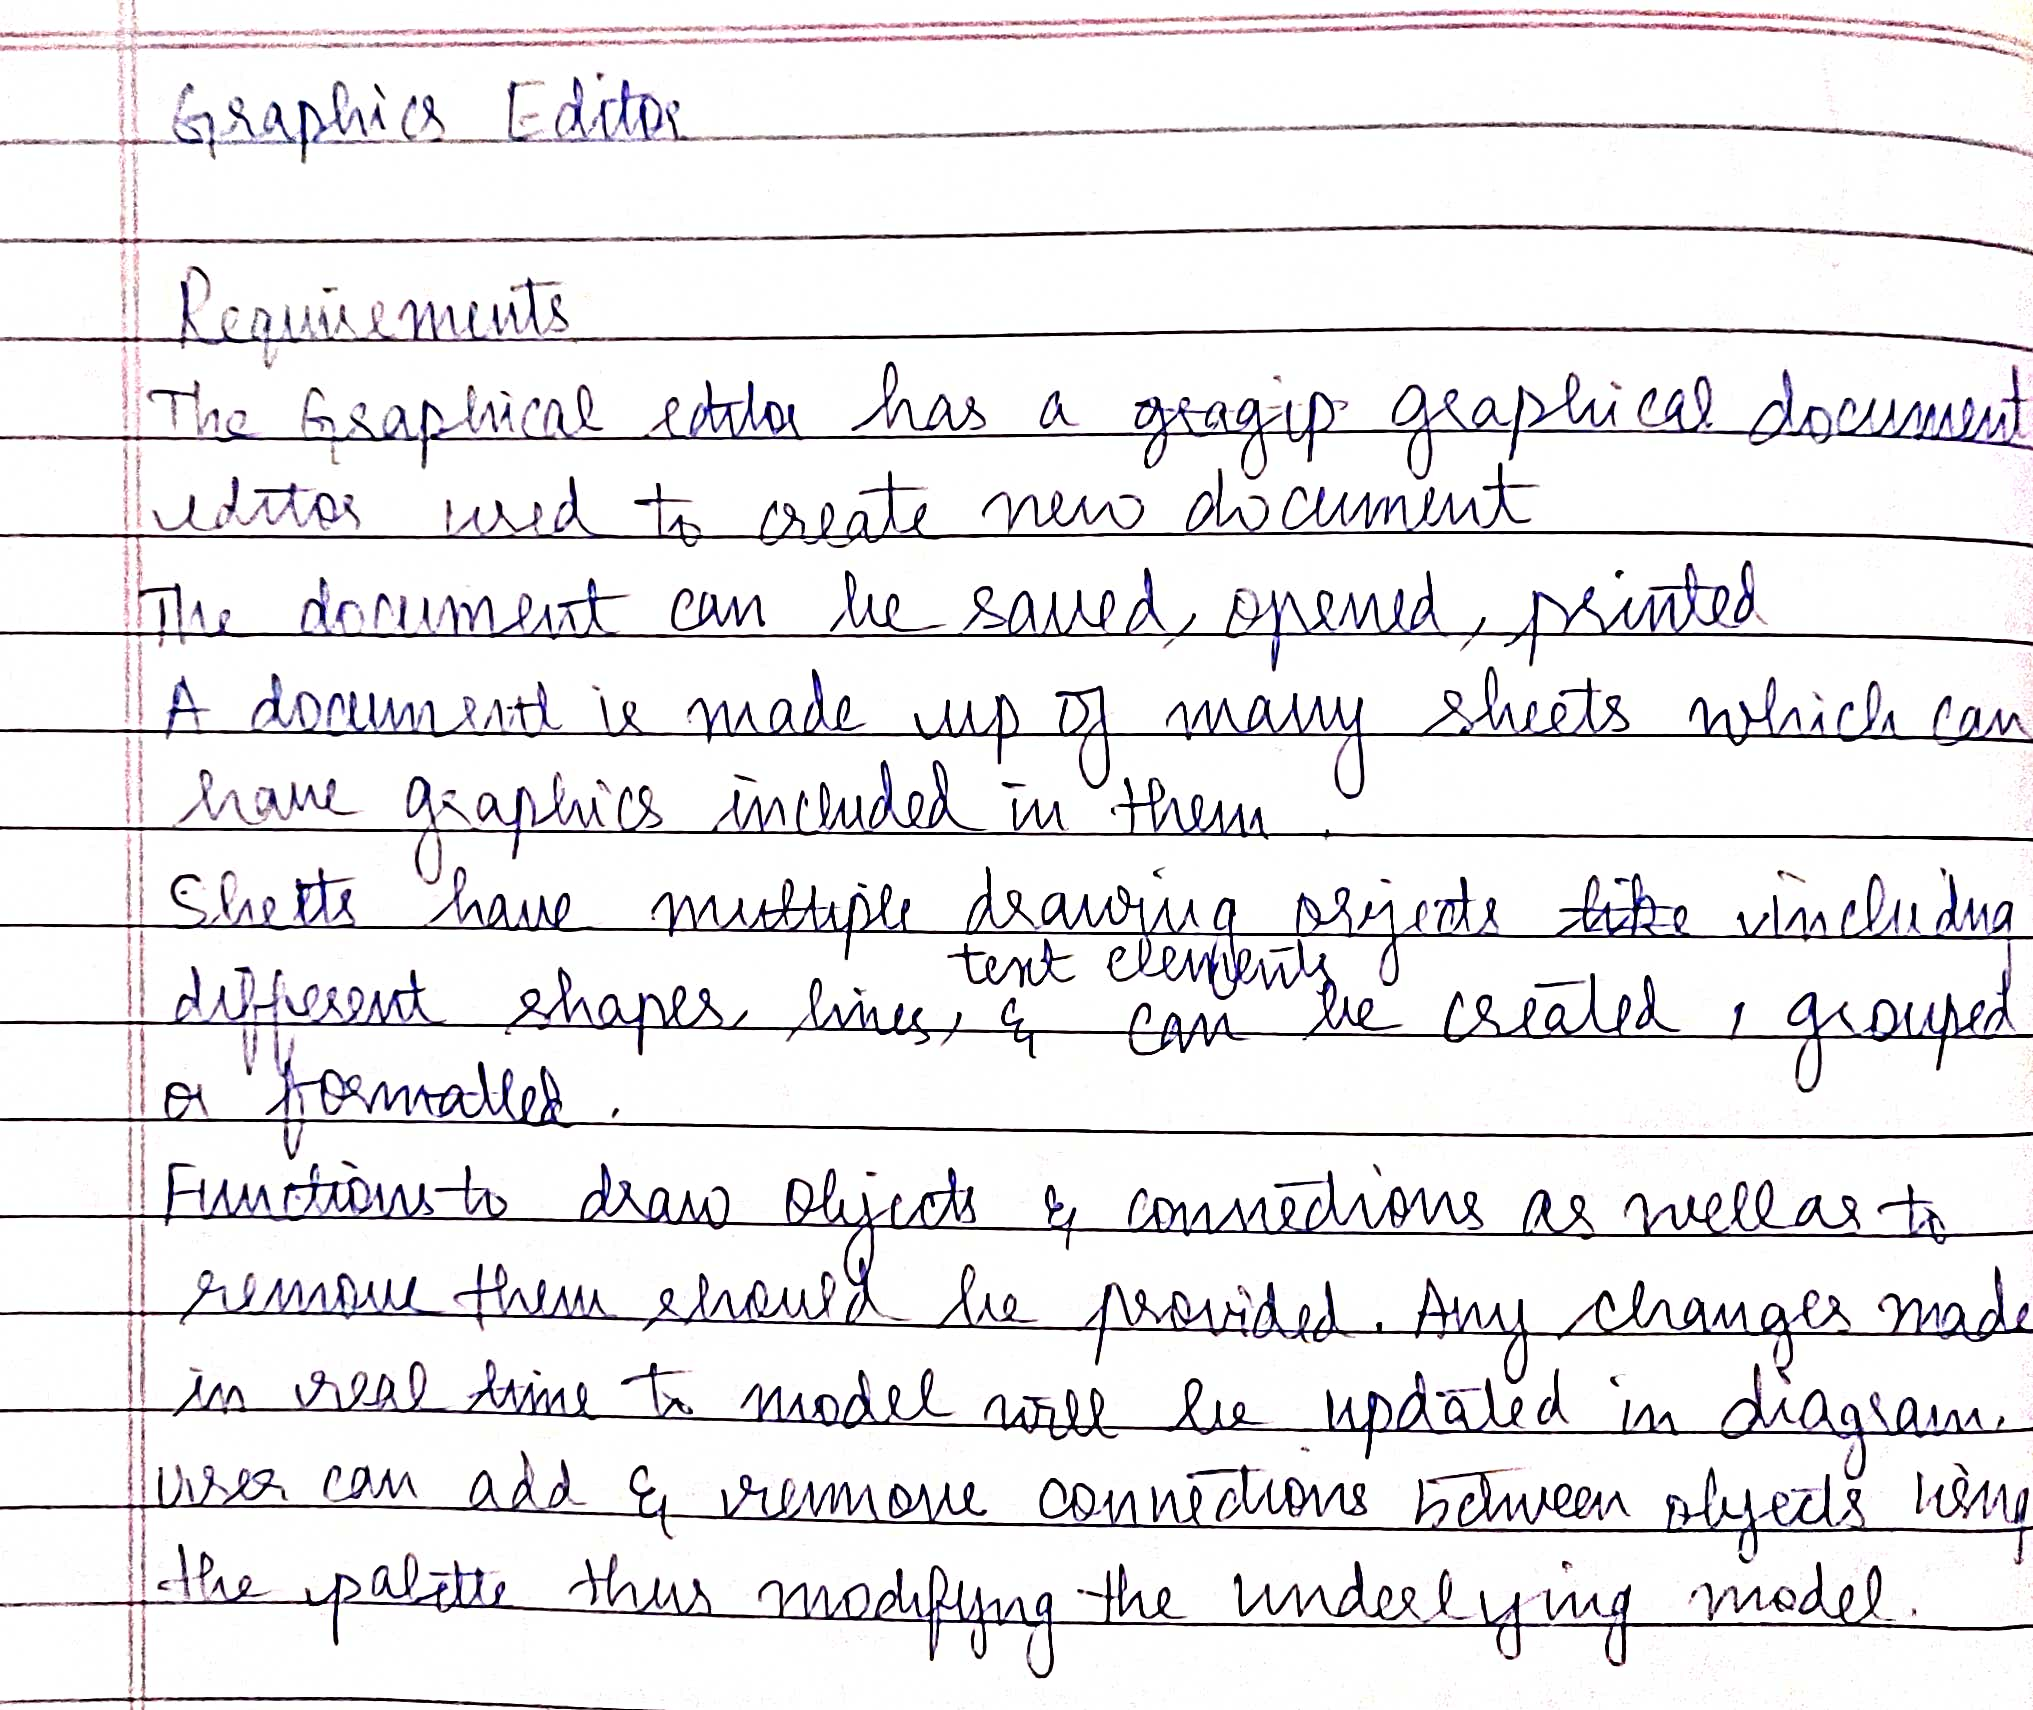 Graphics Editor
Requirements
The Graphical editor has a gragip graphical document
editor used to create new document
The document can be saved, opened, printed
A document is made up of many sheets which can
have graphics included in them.
Sheets have multiple drawing objects like including
text elements
different shapes, lines, & can be created, grouped
or formatted.
Functions to draw objects & connections as well as to
remove them should be provided. Any changes made
in real time to model will be updated in diagram.
User can add & remove connections between objects using
the palette thus modifying the underlying model.